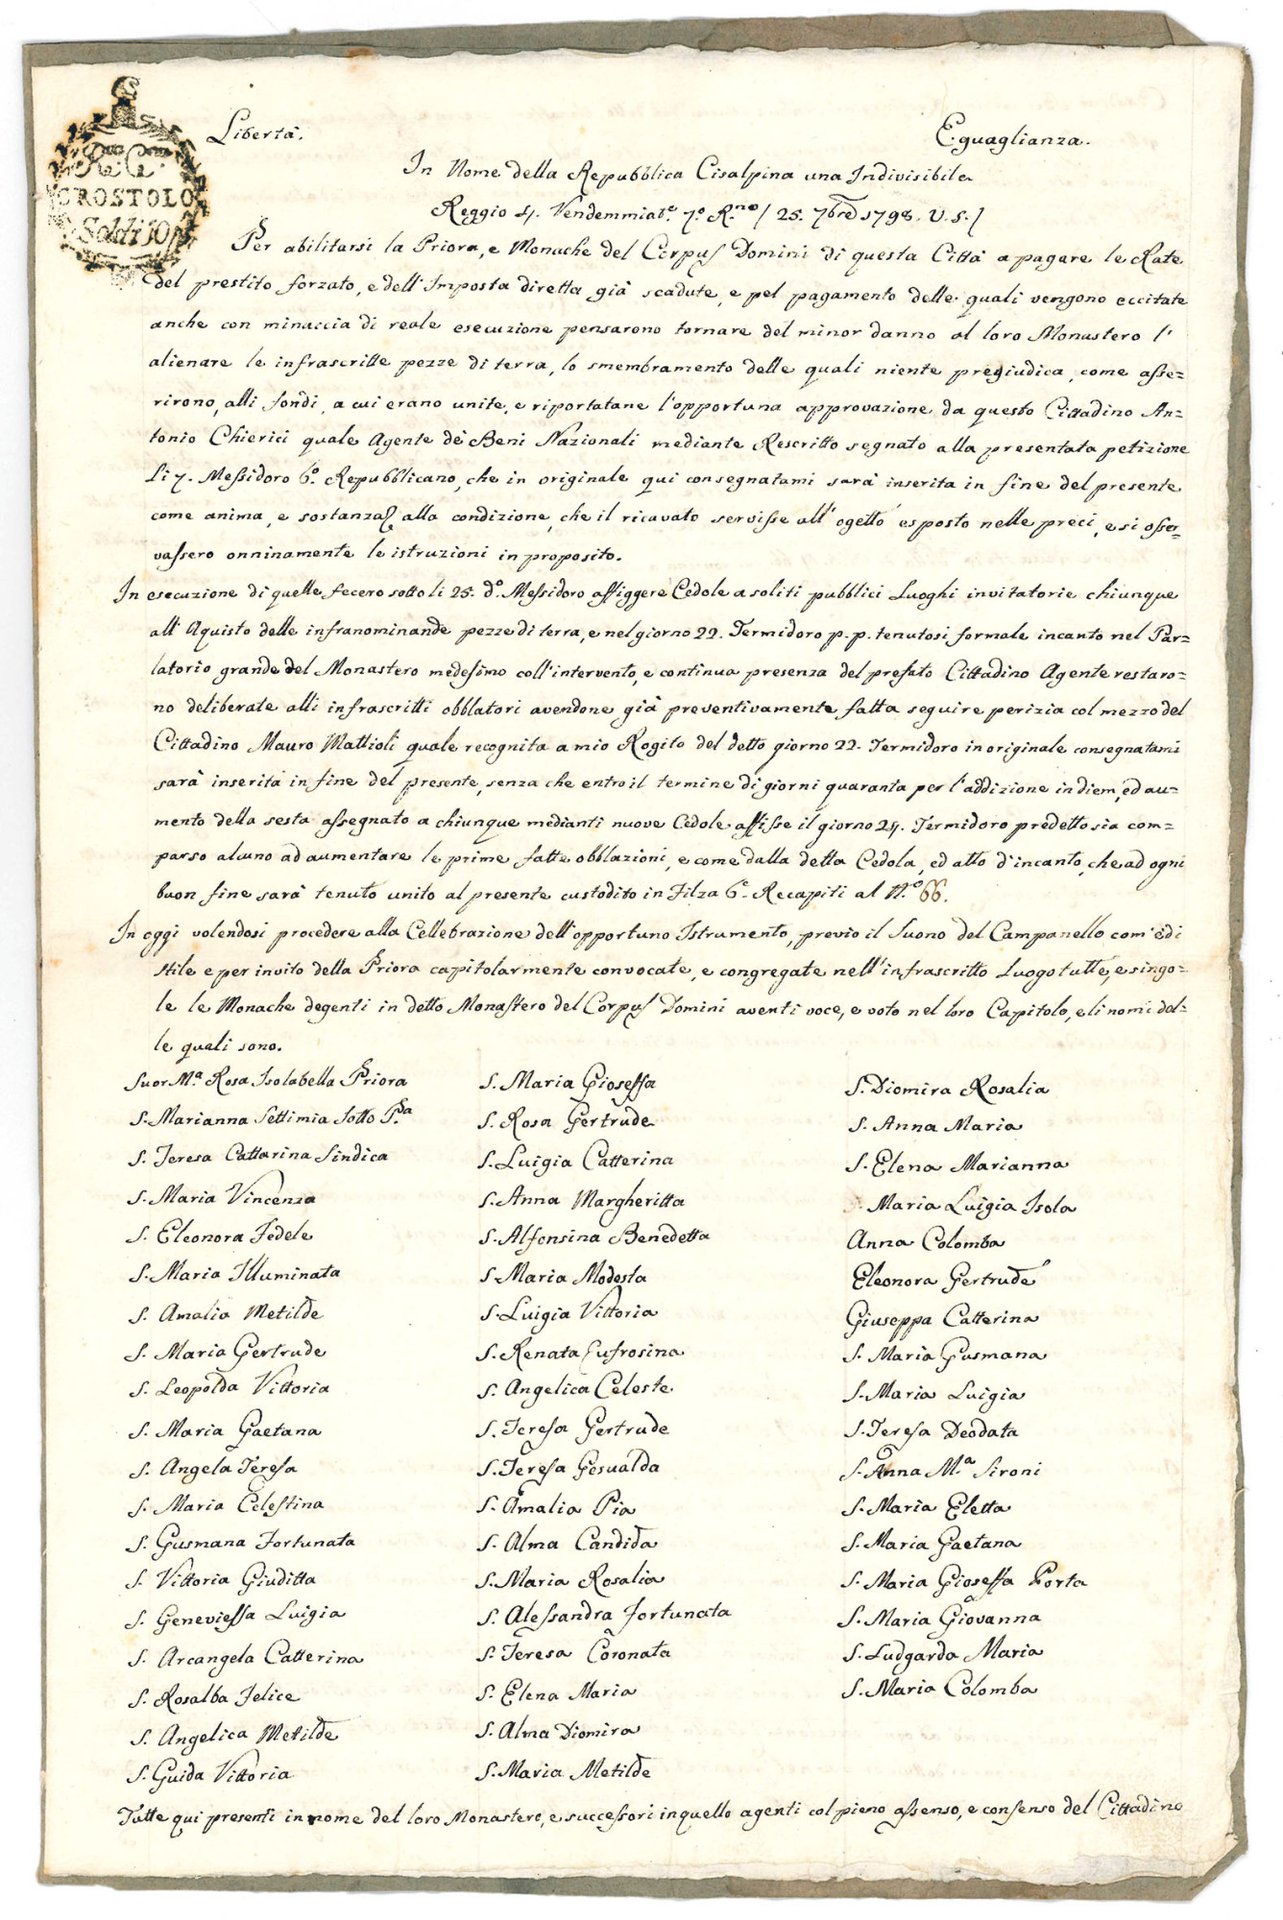 Libertà. Eguaglianza.
CROSTOLO
Soldi 10
In Nome della Repubblica Cisalpina una Indivisibile
Reggio 4. Vendemmiat.e 7.o R.no / 25. 7bre 1798. V. S. /
Per abilitarsi la Priora, e Monache del Corpus Domini di questa Città a pagare le Rate
del prestito forzato, e dell'Imposta diretta già scadute, e pel pagamento delle quali vengono eccitate
anche con minaccia di reale esecuzione pensarono tornare del minor danno al loro Monastero l'
alienare le infrascritte pezze di terra, lo smembramento delle quali niente pregiudica, come asse=
rirono, alli fondi, a cui erano unite, e riportatane l'opportuna approvazione da questo Cittadino An=
tonio Chierici quale Agente de' Beni Nazionali mediante Rescritto segnato alla presentata petizione
li 7. Messidoro 6.o Repubblicano, che in originale qui consegnatami sarà inserita in fine del presente
come anima, e sostanza, alla condizione, che il ricavato servisse all'ogetto esposto nelle preci, e si osser=
vassero onninamente le istruzioni in proposito.
In esecuzione di quelle fecero sotto li 25. d.o Messidoro affiggere Cedole a soliti pubblici Luoghi invitatorie chiunque
all'Aquisto delle infranominande pezze di terra, e nel giorno 22. Termidoro p. p. tenutosi formale incanto nel Par=
latorio grande del Monastero medesimo coll'intervento, e continua presenza del prefato Cittadino Agente restaro=
no deliberate alli infrascritti obblatori avendone già preventivamente fatta seguire perizia col mezzo del
Cittadino Mauro Mattioli quale recognita a mio Rogito del detto giorno 22. Termidoro in originale consegnatami
sarà inserita in fine del presente, senza che entro il termine di giorni quaranta per l'addizione in diem, ed au=
mento della sesta assegnato a chiunque medianti nuove Cedole affisse il giorno 24. Termidoro predetto sia com=
parso alcuno ad aumentare le prime fatte obblazioni, e come dalla detta Cedola, ed atto d'incanto, che ad ogni
buon fine sarà tenuto unito al presente custodito in Filza 6.a Recapiti al N.o 66.
In oggi volendosi procedere alla Cellebrazione dell'opportuno Istrumento, previo il Suono del Campanello com'è di
stile e per invito della Priora capitolarmente convocate, e congregate nell'infrascritto Luogo tutte, e singo=
le le Monache degenti in detto Monastero del Corpus Domini aventi voce, e voto nel loro Capitolo, e li nomi del=
le quali sono.
Suor M.a Rosa Isolabella Priora
S. Marianna Settimia Sotto P.a
S. Teresa Cattarina Sindica
S. Maria Vincenza
S. Eleonora Fedele
S. Maria Illuminata
S. Amalia Metilde
S. Maria Gertrude
S. Leopolda Vittoria
S. Maria Gaetana
S. Angela Teresa
S. Maria Celestina
S. Gusmana Fortunata
S. Vittoria Giuditta
S. Genevieffa Luigia
S. Arcangela Catterina
S. Rosalba Felice
S. Angelica Metilde
S. Guida Vittoria
S. Maria Gioseffa
S. Rosa Gertrude
S. Luigia Catterina
S. Anna Margheritta
S. Alfonsina Benedetta
S. Maria Modesta
S. Luigia Vittoria
S. Renata Eufrosina
S. Angelica Celeste
S. Teresa Gertrude
S. Teresa Gesualda
S. Amalia Pia
S. Alma Candida
S. Maria Rosalia
S. Alessandra Fortunata
S. Teresa Coronata
S. Elena Maria
S. Alma Diomira
S. Maria Metilde
S. Diomira Rosalia
S. Anna Maria
S. Elena Marianna
Maria Luigia Isola
Anna Colomba
Eleonora Gertrude
Giuseppa Catterina
S. Maria Gusmana
S. Maria Luigia
S. Teresa Deodata
S. Anna M.a Sironi
S. Maria Eletta
S. Maria Gaetana
S. Maria Gioseffa Porta
S. Maria Giovanna
S. Ludgarda Maria
S. Maria Colomba
Tutte qui presenti in nome del loro Monastero, e successori in quello agenti col pieno assenso, e consenso del Cittadino